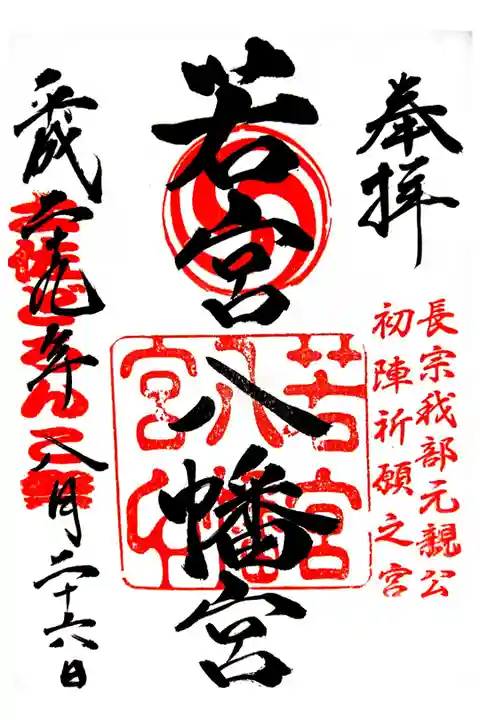 奉拝
長宗我部元親公
初陣祈願之宮
若宮八幡宮
若宮
八幡
宮
平成二十九年八月二十六日